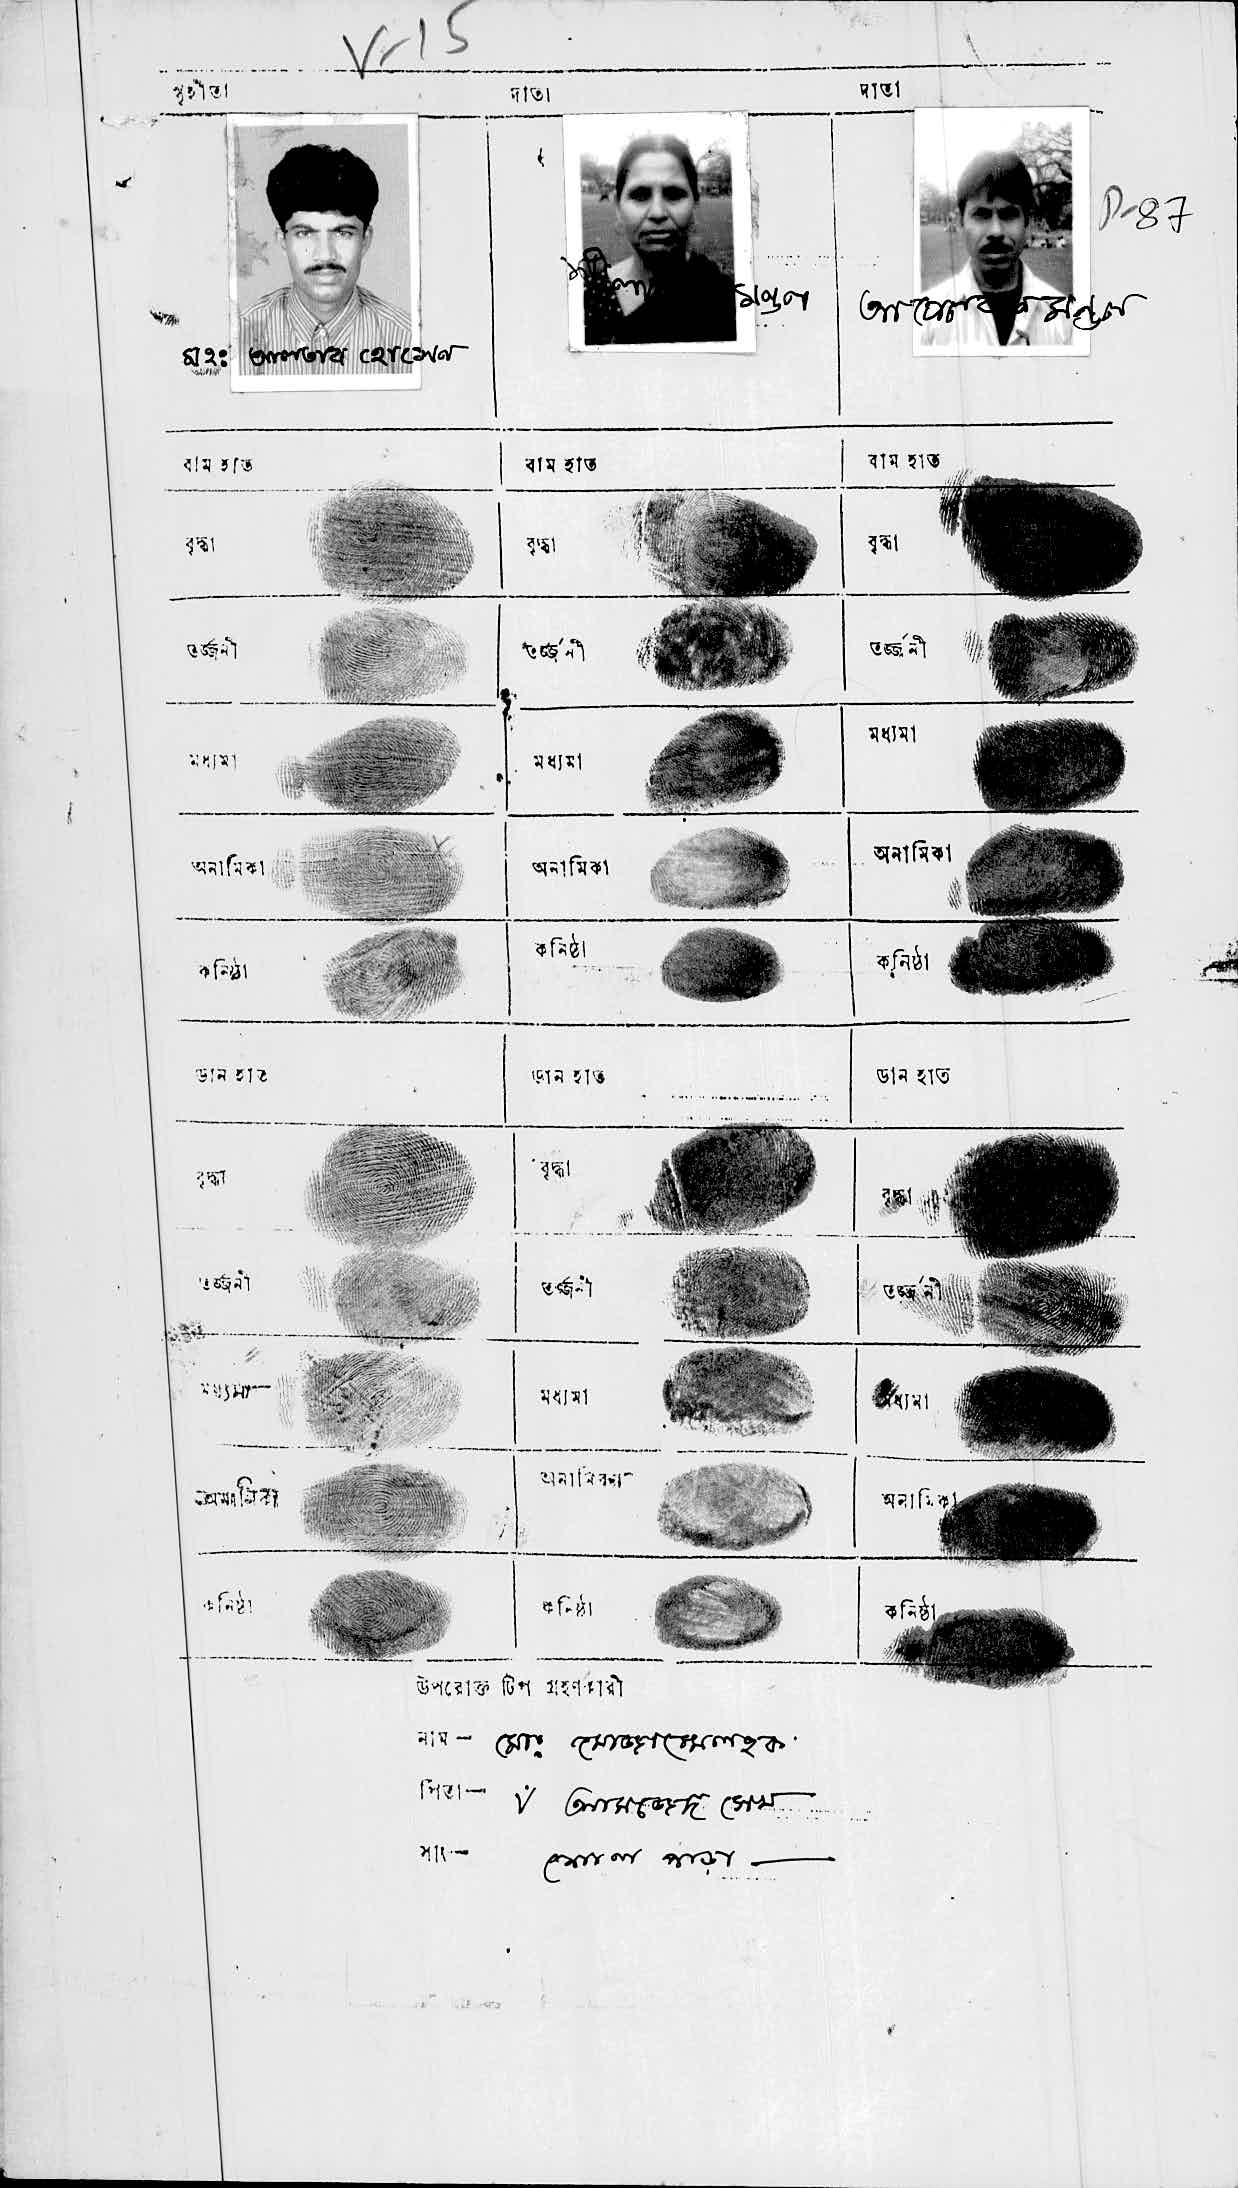 V-15
গৃহীতা দাতা দাতা
P-87
মণ্ডল মণ্ডল
মহঃ আলতাব হোসেন
বাম হাত বাম হাত বাম হাত
বৃদ্ধা বৃদ্ধা বৃদ্ধা
তর্জ্জনী তর্জ্জনী তর্জ্জনী
মধ্যমা মধ্যমা মধ্যমা
অনামিকা অনামিকা অনামিকা
কনিষ্ঠা কনিষ্ঠা কনিষ্ঠা
ডান হাত ডান হাত ডান হাত
বৃদ্ধা বৃদ্ধা বৃদ্ধা
তর্জ্জনী তর্জ্জনী তর্জ্জনী
মধ্যমা মধ্যমা মধ্যমা
অনামিকা অনামিকা অনামিকা
কনিষ্ঠা কনিষ্ঠা কনিষ্ঠা
উপরোক্ত টিপ গ্রহণকারী
নাম - মোঃ মোজাম্মেলহক
পিতা - ৺ আমজেদ সেখ
সাং - পাড়া